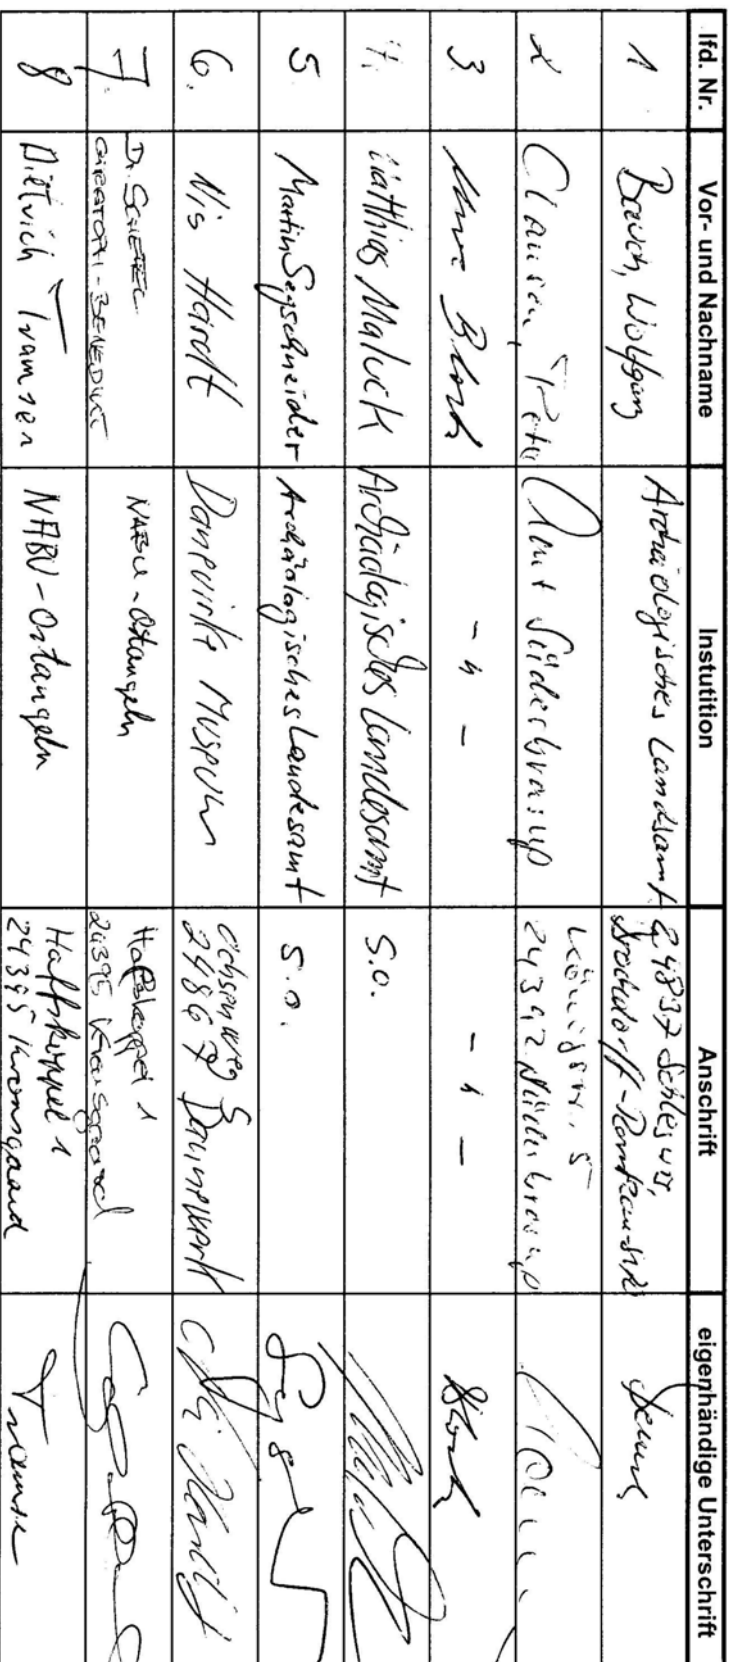 lfd. Nr. Vor- und Nachname Instutition Anschrift eigenhändige Unterschrift
1 Bauch, Wolfgang Archäologisches Landesamt 24837 Schleswig,
Brockdorff-Rantzau-Str.
2 Clausen, Peter Amt Süderbrarup Königstr. 5
24392 Süderbrarup
3 Blonk - " - - " -
4. Matthias Maluck Archäologisches Landesamt S.O.
5 Martin Segschneider Archäologisches Landesamt S.O.
6. Nis Hardt Danevirke Museum Ochsenweg 5
24867 Dannewerk Nis Hardt
7. Dr. NABU-Ostangeln Haffskoppel 1
24395 Kronsgaard
8 Dietrich Tramsen NABU-Ostangeln Haffskoppel 1
24395 Kronsgaard Tramsen